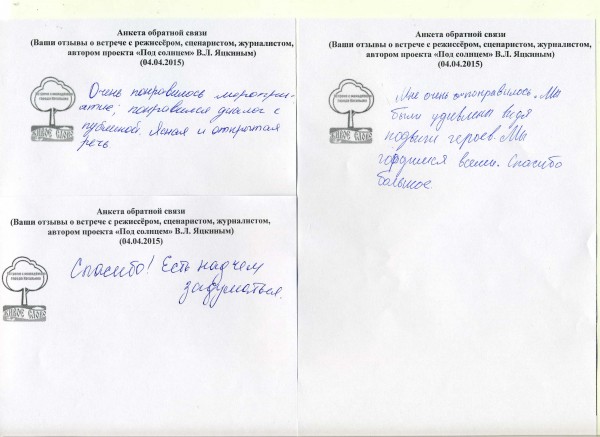 Анкета обратной связи
(Ваши отзывы о встрече с режиссёром, сценаристом, журналистом,
автором проекта «Под солнцем» В.Л. Яцкиным)
(04.04.2015)
Очень понравилось меропри-
ятие; понравился диалог с
публикой. Ясная и открытая
речь
ЖИВОЕ СЛОВО
Анкета обратной связи
(Ваши отзывы о встрече с режиссёром, сценаристом, журналистом,
автором проекта «Под солнцем» В.Л. Яцкиным)
(04.04.2015)
Спасибо! Есть над чем
задуматься.
ЖИВОЕ СЛОВО
Анкета обратной связи
(Ваши отзывы о встрече с режиссёром, сценаристом, журналистом,
автором проекта «Под солнцем» В.Л. Яцкиным)
(04.04.2015)
Мне очень понравилось. Мы
были удивлены видя
подвиги героев. Мы
гордимся всеми. Спасибо
большое.
ЖИВОЕ СЛОВО